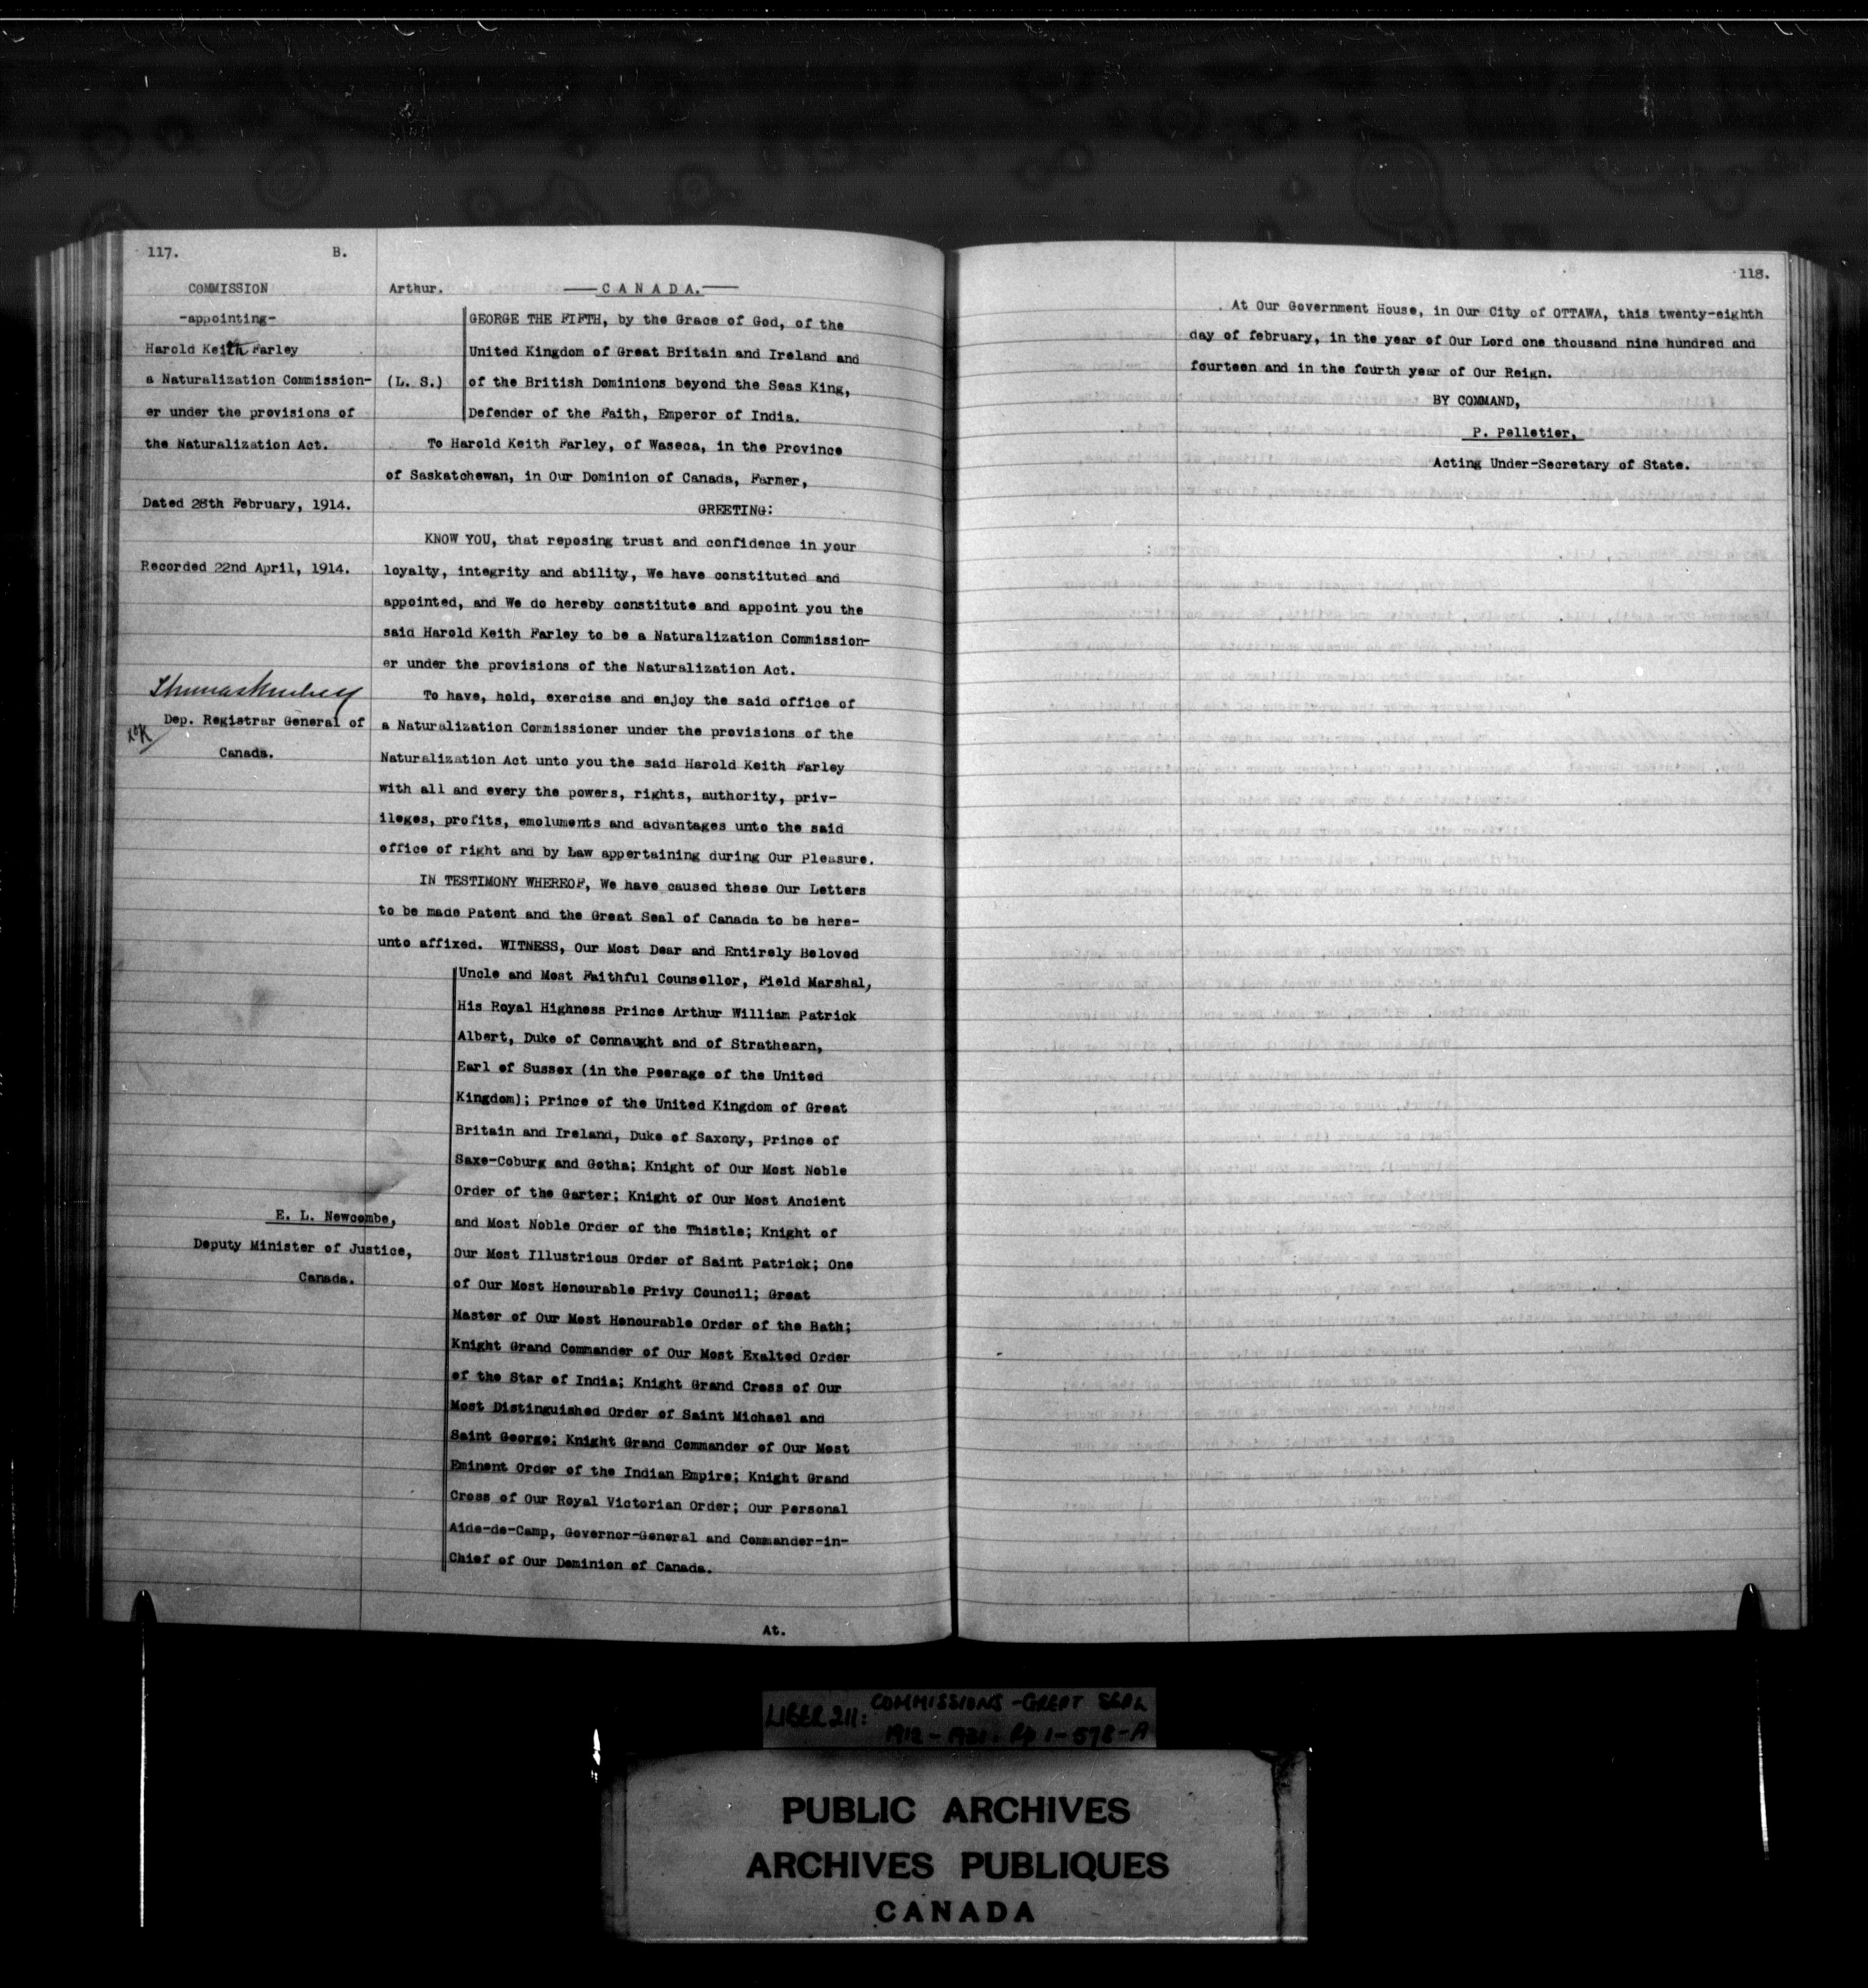 117. B.
COMMISSION
-appointing-
Harold Keith Farley
a Naturalization Commission-
er under the provisions of
the Naturalization Act.
Dated 28th February, 1914.
Recorded 22nd April, 1914.
Dep. Registrar General of
Canada.
E. L. Newcombe,
Deputy Minister of Justice,
Canada.
Arthur. CANADA.
(L. S.)
GEORGE THE FIFTH, by the Grace of God, of the
United Kingdom of Great Britain and Ireland and
of the British Dominions beyond the Seas King,
Defender of the Faith, Emperor of India.
To Harold Keith Farley, of Waseca, in the Province
of Saskatchewan, in Our Dominion of Canada, Farmer,
GREETING:
KNOW YOU, that reposing trust and confidence in your
loyalty, integrity and ability, We have constituted and
appointed, and We do hereby constitute and appoint you the
said Harold Keith Farley to be a Naturalization Commission-
er under the provisions of the Naturalization Act.
To have, hold, exercise and enjoy the said office of
a Naturalization Commissioner under the provisions of the
Naturalization Act unto you the said Harold Keith Farley
with all and every the powers, rights, authority, priv-
ileges, profits, emoluments and advantages unto the said
office of right and by Law appertaining during Our Pleasure.
IN TESTIMONY WHEREOF, We have caused these Our Letters
to be made Patent and the Great Seal of Canada to be here-
unto affixed. WITNESS, Our Most Dear and Entirely Beloved
Uncle and Most Faithful Counsellor, Field Marshal,
His Royal Highness Prince Arthur William Patrick
Albert, Duke of Connaught and of Strathearn,
Earl of Sussex (in the Peerage of the United
Kingdom); Prince of the United Kingdom of Great
Britain and Ireland, Duke of Saxony, Prince of
Saxe-Coburg and Gotha; Knight of Our Most Noble
Order of the Garter; Knight of Our Most Ancient
and Most Noble Order of the Thistle; Knight of
Our Most Illustrious Order of Saint Patrick; One
of Our Most Honourable Privy Council; Great
Master of Our Most Honourable Order of the Bath;
Knight Grand Commander of Our Most Exalted Order
of the Star of India; Knight Grand Cross of Our
Most Distinguished Order of Saint Michael and
Saint George; Knight Grand Commander of Our Most
Eminent Order of the Indian Empire; Knight Grand
Cross of Our Royal Victorian Order; Our Personal
Aide-de-Camp, Governor-General and Commander-in-
Chief of Our Dominion of Canada.
At.
118.
At Our Government House, in Our City of OTTAWA, this twenty-eighth
day of february, in the year of Our Lord one thousand nine hundred and
fourteen and in the fourth year of Our Reign.
BY COMMAND,
P. Pelletier,
Acting Under-Secretary of State.
LIBER 211: COMMISSIONS - GREAT SEAL
1912 - 1921. Pp 1-578-A
PUBLIC ARCHIVES
ARCHIVES PUBLIQUES
CANADA